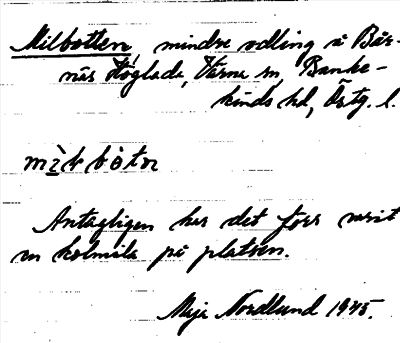 Milbotten, mindre odling å Bär-
näs Höglada, Värna sn, Banke-
kinds hd, Östg. l.
Antagligen har det förr varit
en kolmila på platsen.
Maja Nordlund 1945.